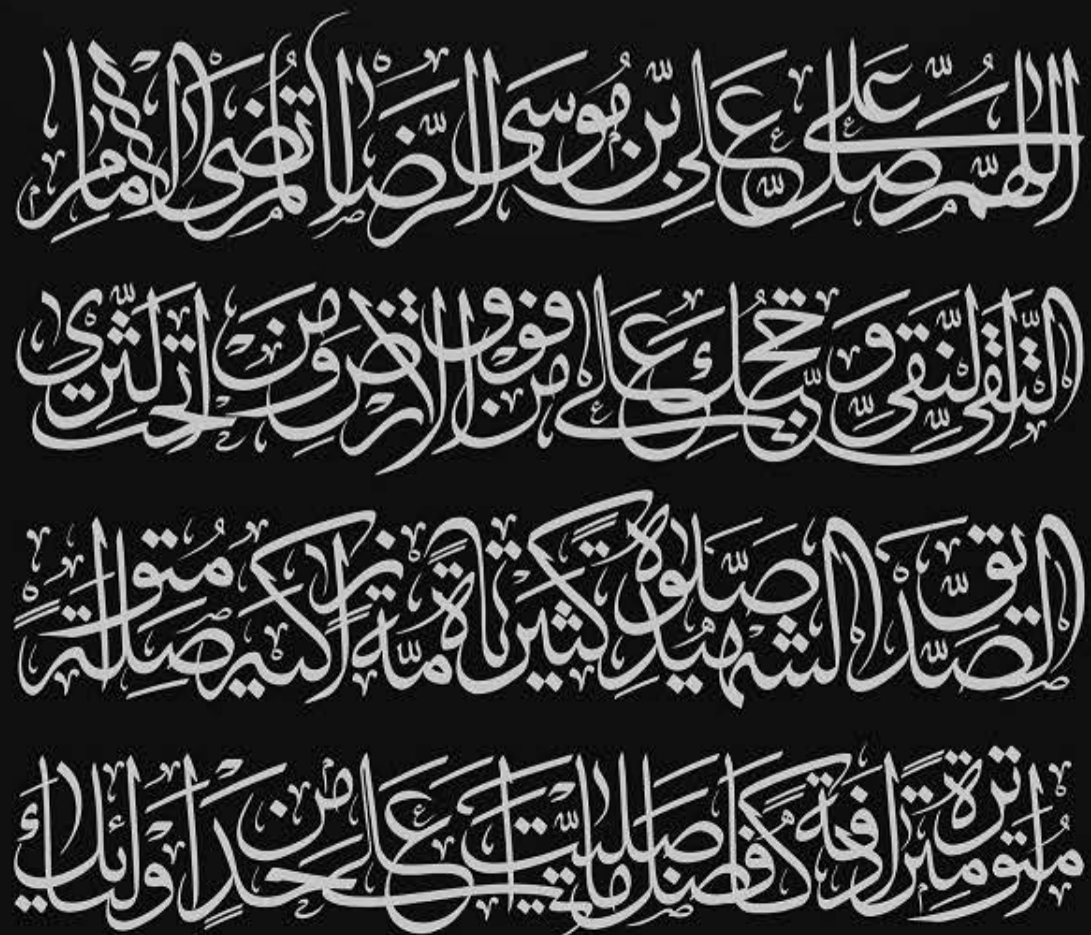 اللهم صل على علي بن موسى الرضا المرتضى الامام
التقي النقي و حجتك على من فوق الارض و من تحت الثرى
الصديق الشهيد صلوة كثيرة تامة زاكية متواصلة
متواترة مترادفة كافضل ما صليت على احد من اوليائك